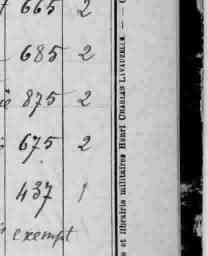 665 2
685 2
875 2
675 2
437 1
exempt
et librairie militaires Henri CHARLES LAVAUZELLE. —